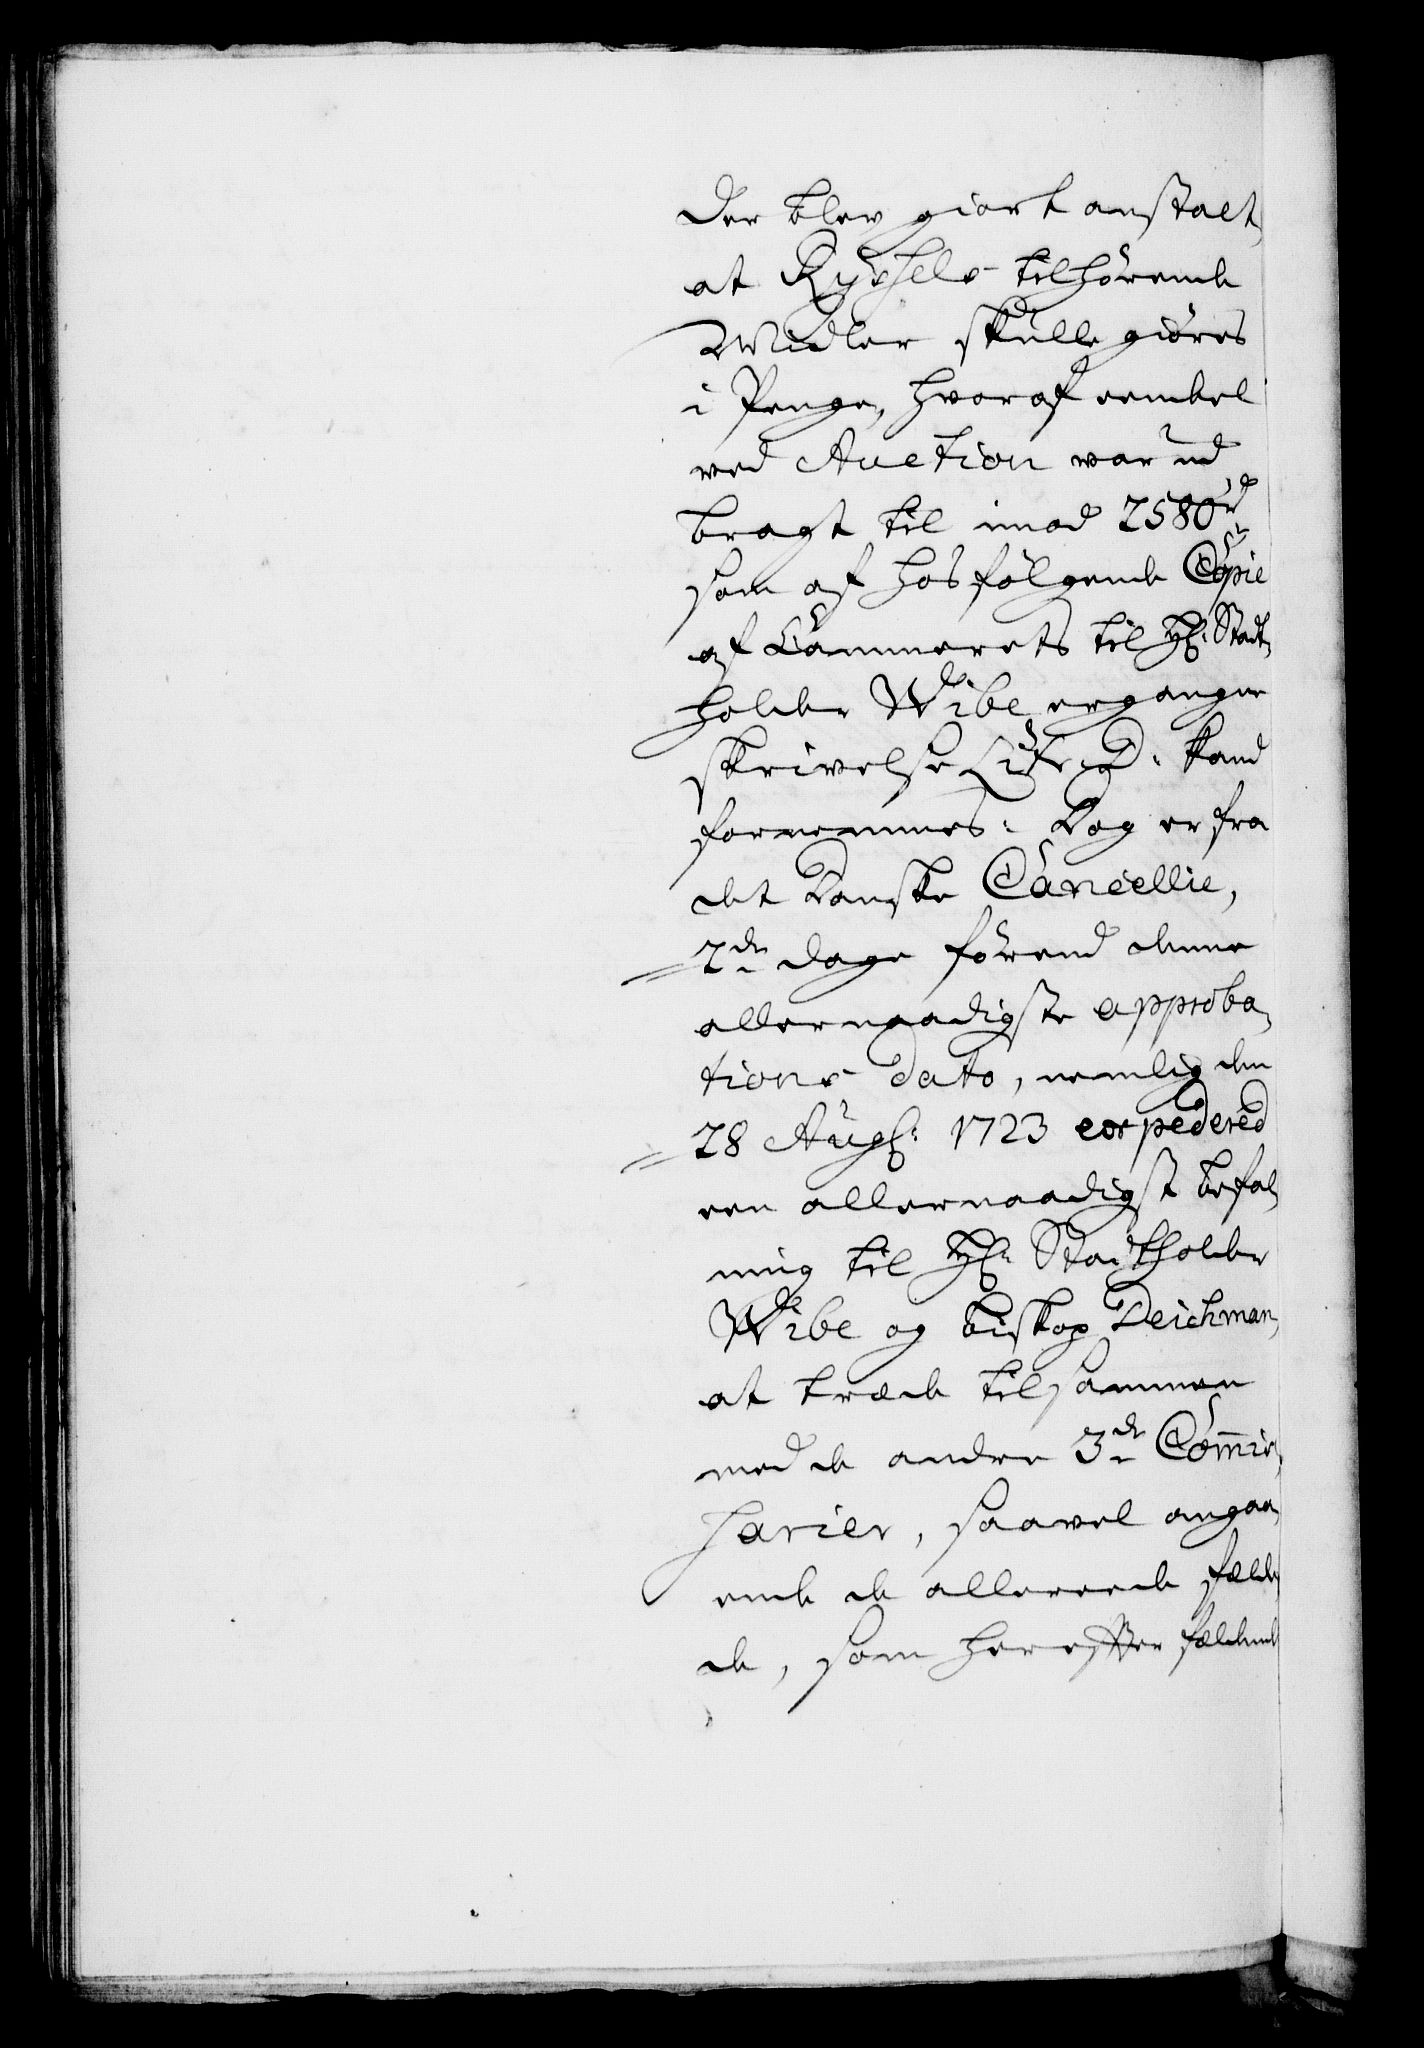 der blev giort anstalt,
at Ryssels tilhørende
Midler skulle giøres
i Penge, hvoraf eendeel
ved Auction var ud
bragt til imod 2580 rd
som af hosfølgende Copie
af Cammerets til Hr: Stadt,
holder Wibe ergangne
skrivelse Litr D: kand
fornemmes: Dog er fra
det Danske Cancellie,
2de dage førend denne
allernaadigste approba,
tions Dato, nemlig den
28 Augs: 1723 expedered
een allernaadigst befal,
ning til Hr: Stadtholder
Wibe og biskop Deichman,
at træde tilsammen
med de andre 3de Com̄is,
sarier, saavel angaa,
ende de allereede fælde,
de, som herefter fældende